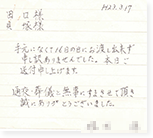 H23.3.17
様
様
手元になくて16日の日にお渡し出来ず
申し訳ありませんでした。本日ご
送付申し上げます。
通夜・葬儀と無事にすまさせて頂き
誠にありがとうございました。